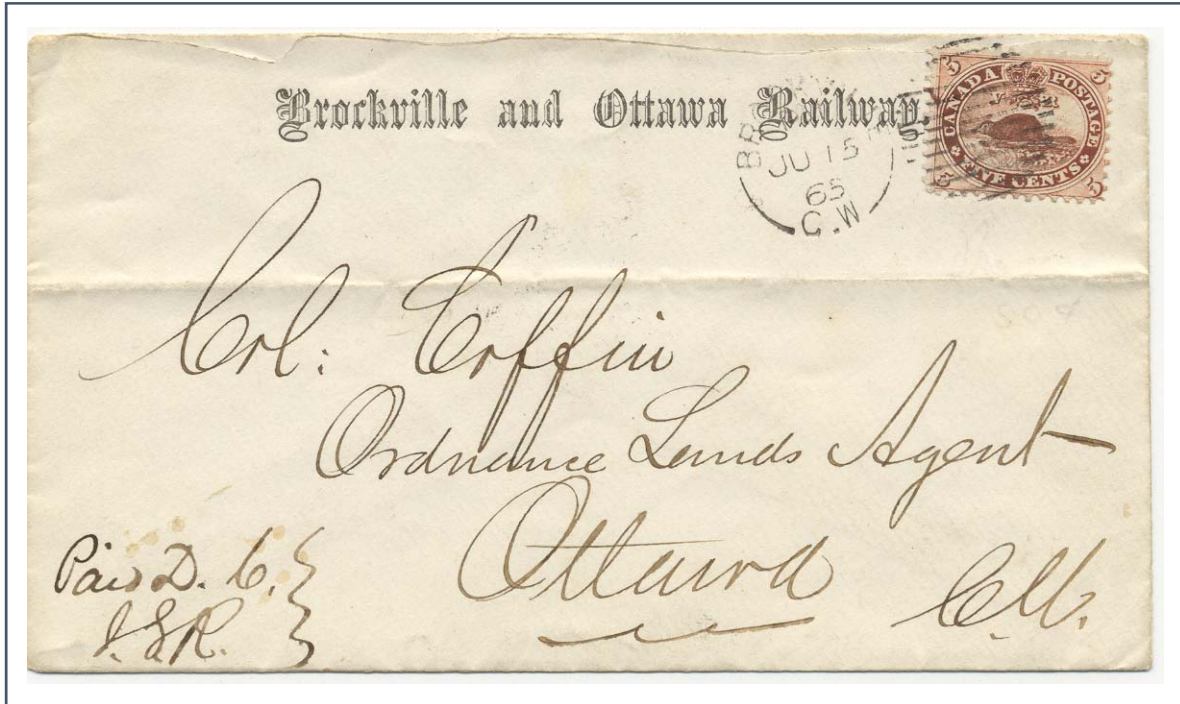 Brockville and Ottawa Railway.
JU 15
65
C.W
5 5
CANADA POSTAGE
FIVE CENTS
5 5
Col: Coffin
Ordnance Lands Agent
Ottawa C.W.
Paid D. C.
J.G.R.